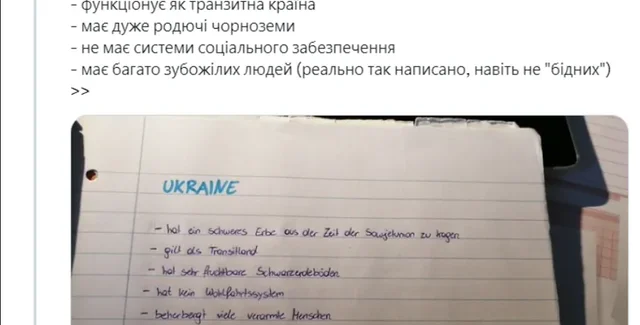 - функціонує як транзитна країна
- має дуже родючі чорноземи
- не має системи соціального забезпечення
- має багато зубожілих людей (реально так написано, навіть не "бідних")
>>
UKRAINE
- hat ein schweres Erbe aus der Zeit der Sowjetunion zu tragen
- gilt als Transitland
- hat sehr fruchtbare Schwarzerdeböden
- hat kein Wohlfahrtssystem
- beherbergt viele verarmte Menschen